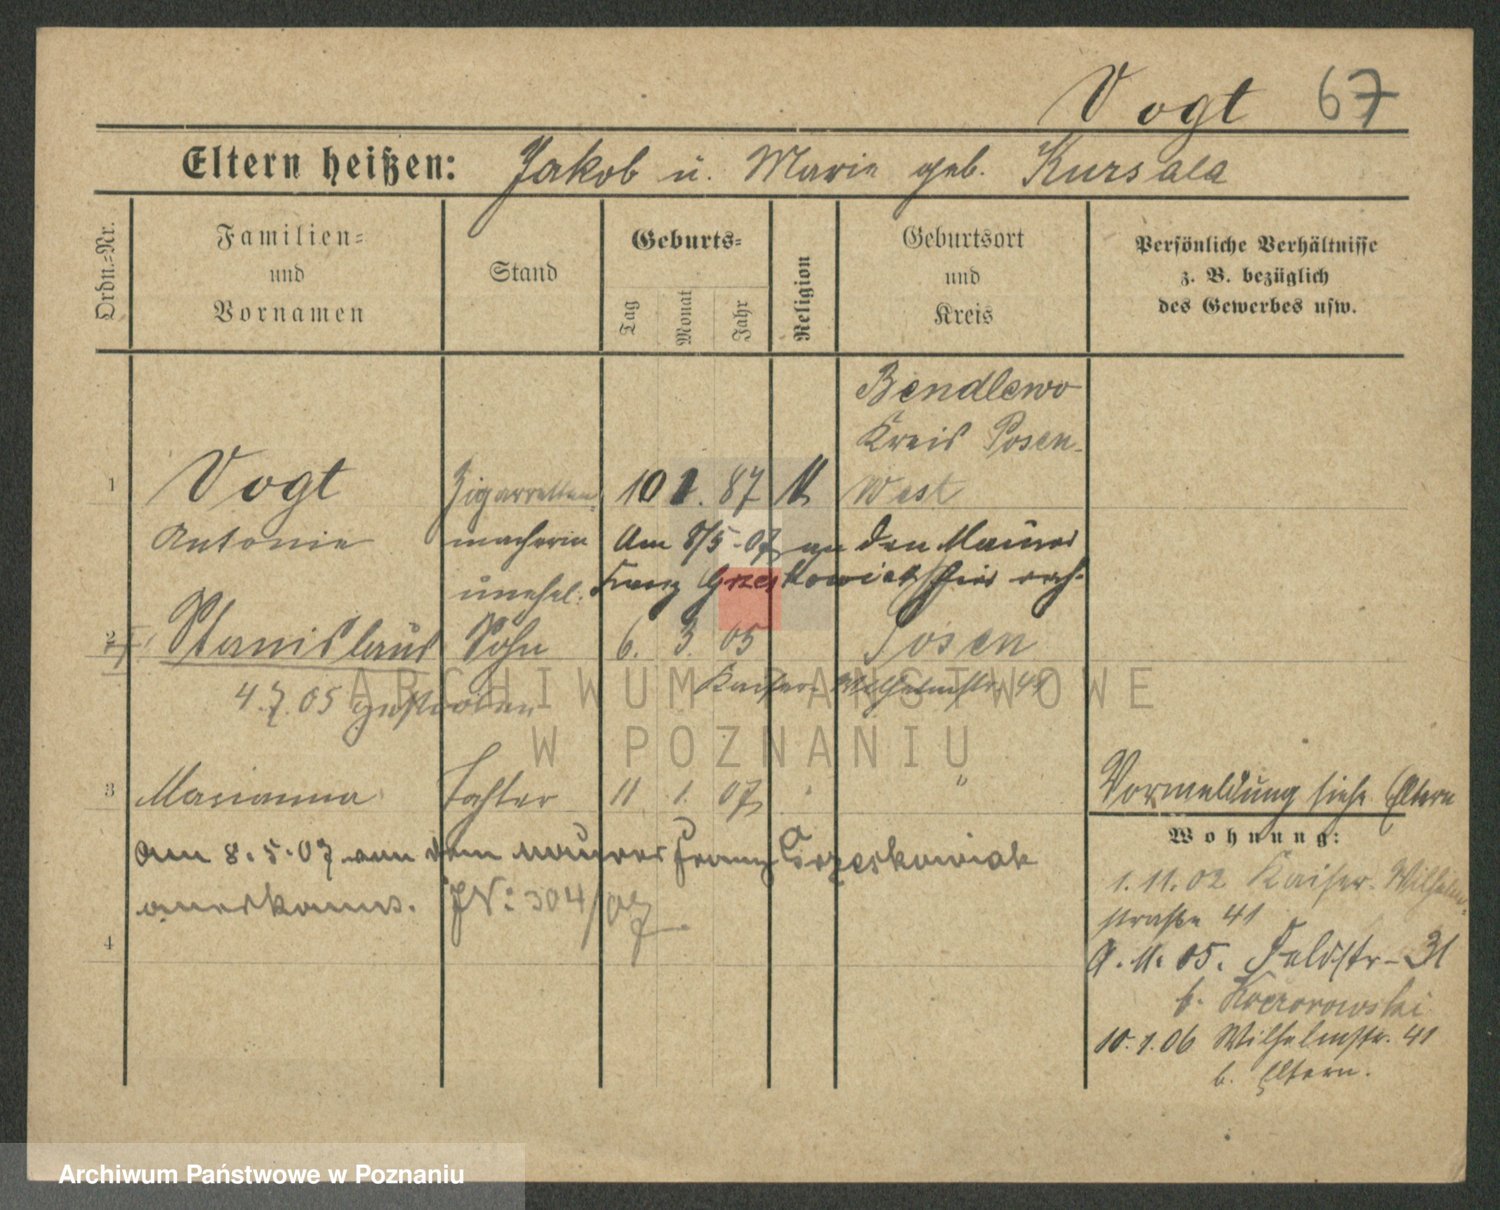 Vogt 67
Eltern heißen: Jakob u. Marie geb. Kursala
Ordn.-Nr.
Familien-
und
Vornamen
Stand
Geburts-
Tag
Monat
Jahr
Religion
Geburtsort
und
Kreis
Persönliche Verhältnisse
z. B. bezüglich
des Gewerbes usw.
Bendlewo
Kreis Posen-
1 Vogt Zigarretten 10 87 West
Antonie macherin Am 8/5-07 an den Maurer
unehel. Franz Grzeskowiak hier verh.
2 Stanislaus Sohn 6. 3. 05 Posen
4.7.05 gestorben Kaiser Wilhelmstr. 41
3 Marianna Tochter 11 1. 07 " "
Vormeldung siehe Eltern
Am 8.5.07 von dem Maurer Franz Grzeskowiak
anerkannt. JN: 304/07
4
Wohnung:
1.11.02 Kaiser-Wilhelm-
straße 41
05. Feldstr-31
b.
10.1.06 Wilhelmstr. 41
b. Eltern.
ARCHIWUM PAŃSTWOWE
W POZNANIU
Archiwum Państwowe w Poznaniu